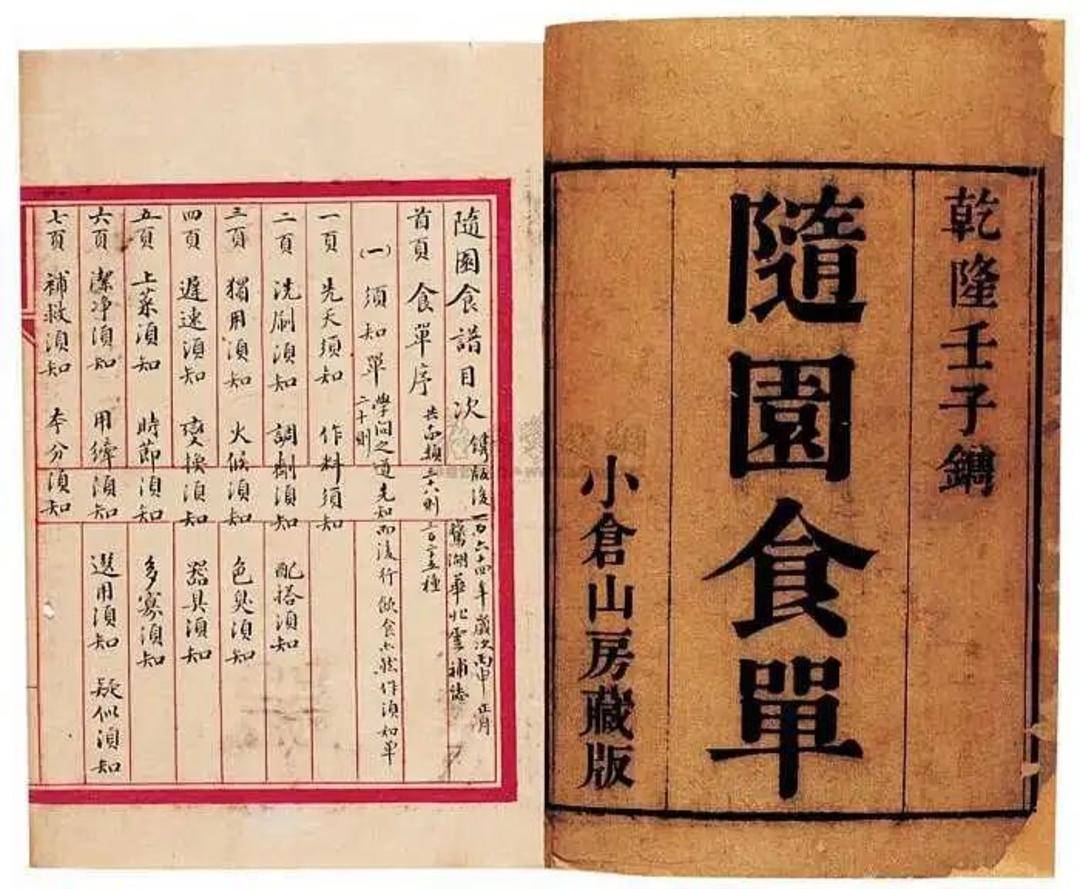 乾隆壬子鐫
隨園食單
小倉山房藏版
隨園食譜目次 鐫版後一百六十四年歲次丙申正月
鶩湖華北雲補誌
首頁 食單序 共
三百二十五種
(一) 須知單 學問之道先知而後行飲食亦然作須知單
二十則
一頁 先天須知 作料須知
二頁 洗刷須知 調劑須知 配搭須知
三頁 獨用須知 火候須知 色臭須知
四頁 遲速須知 變換須知 器具須知
五頁 上菜須知 時節須知 多寡須知
六頁 潔净須知 用縴須知 選用須知 疑似須知
七頁 補救須知 本分須知